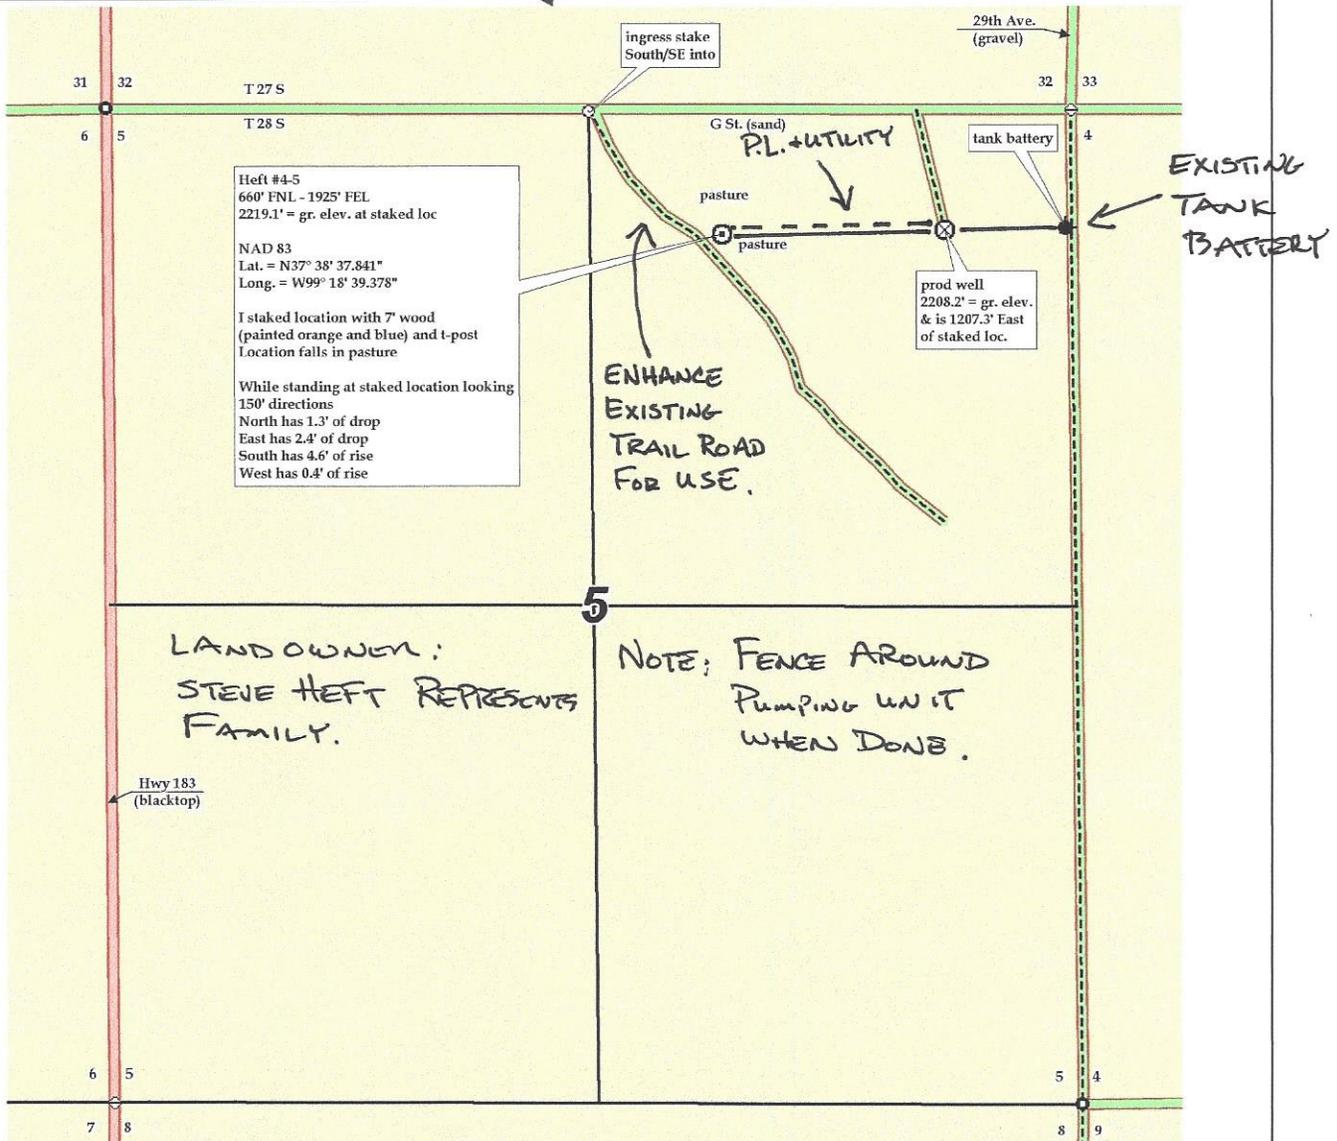 29th Ave.
(gravel)
ingress stake
South/SE into
31 32
T 27 S
32 33
6 5
T 28 S
G St. (sand)
4
P.L. + UTILITY
tank battery
EXISTING
TANK
BATTERY
Heft #4-5
660' FNL - 1925' FEL
2219.1' = gr. elev. at staked loc
NAD 83
Lat. = N37° 38' 37.841"
Long. = W99° 18' 39.378"
I staked location with 7' wood
(painted orange and blue) and t-post
Location falls in pasture
While standing at staked location looking
150' directions
North has 1.3' of drop
East has 2.4' of drop
South has 4.6' of rise
West has 0.4' of rise
pasture
pasture
prod well
2208.2' = gr. elev.
& is 1207.3' East
of staked loc.
ENHANCE
EXISTING
TRAIL ROAD
FOR USE.
5
LANDOWNER:
STEVE HEFT REPRESENTS
FAMILY.
NOTE; FENCE AROUND
PUMPING UNIT
WHEN DONE.
Hwy 183
(blacktop)
6 5
5 4
7 8
8 9